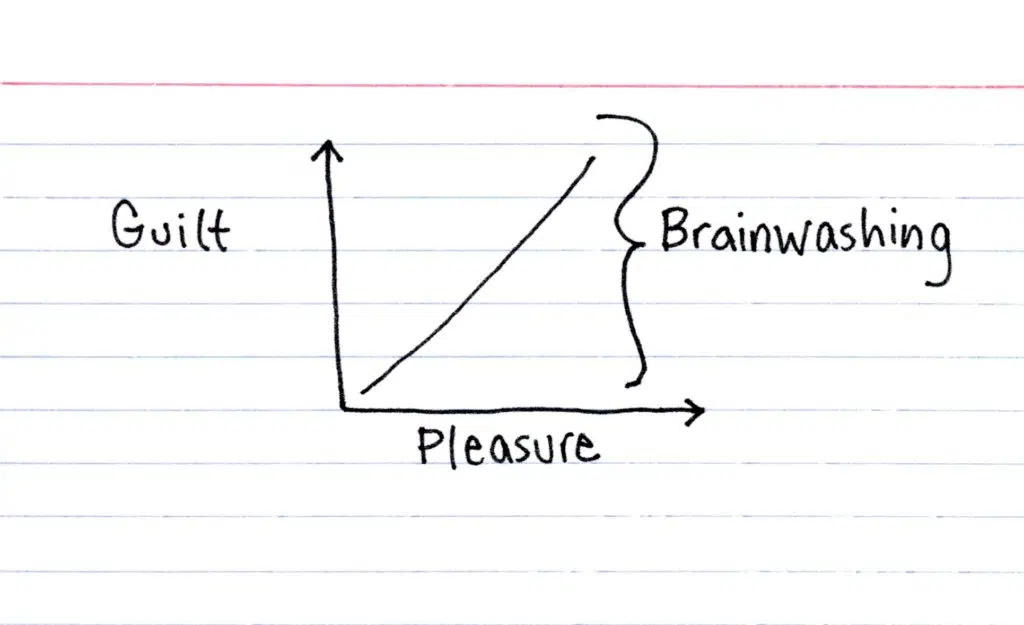 Guilt
Brainwashing
Pleasure